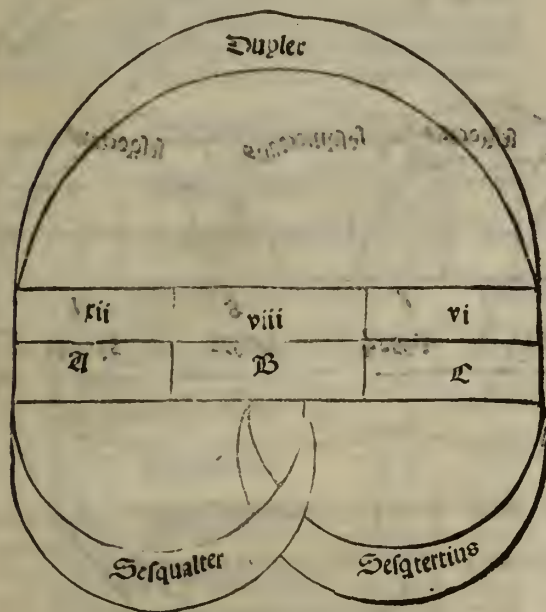 Dupler
xii viii vi
A B C
Sesqualter Sesqtertius